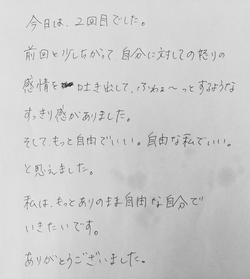 今日は、2回目でした。
前回と少しちがって自分に対しての怒りの
感情を吐き出して、ふわぁ〜っとするような
すっきり感がありました。
そして、もっと自由でいい。自由な私でいい。
と思えました。
私は、もっとありのまま自由な自分で
いきたいです。
ありがとうございました。